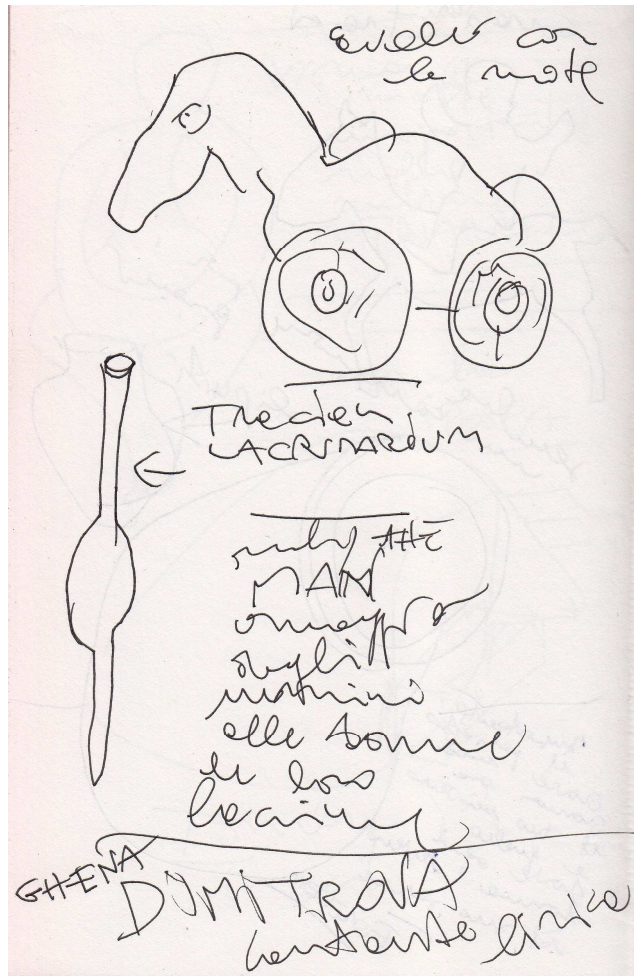 con
le ruote
LACRIMARIUM
THE
MAN
omaggio
degli
uomini
alle donne
le loro
lacrime
GHENA
DIMITROVA
cantante lirica